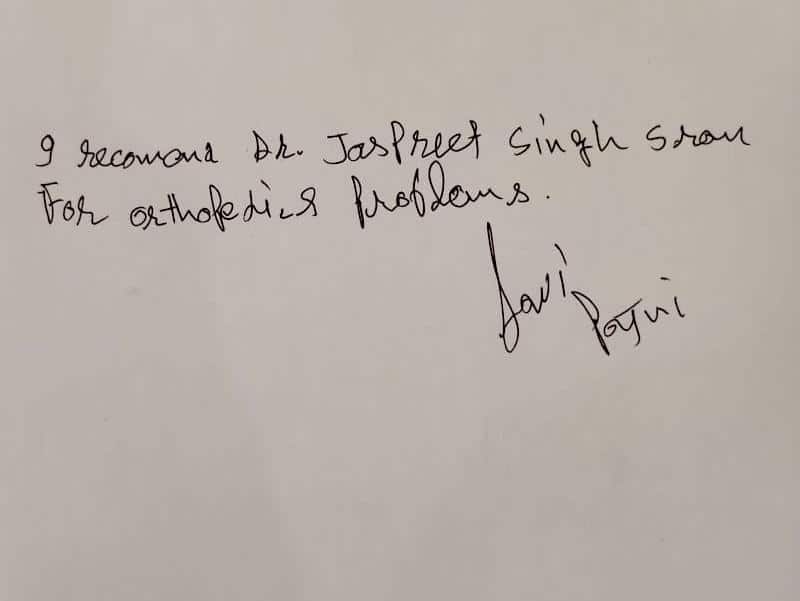 I recomond Dr. JasPreet Singh Sran
For orthopedics Problems.